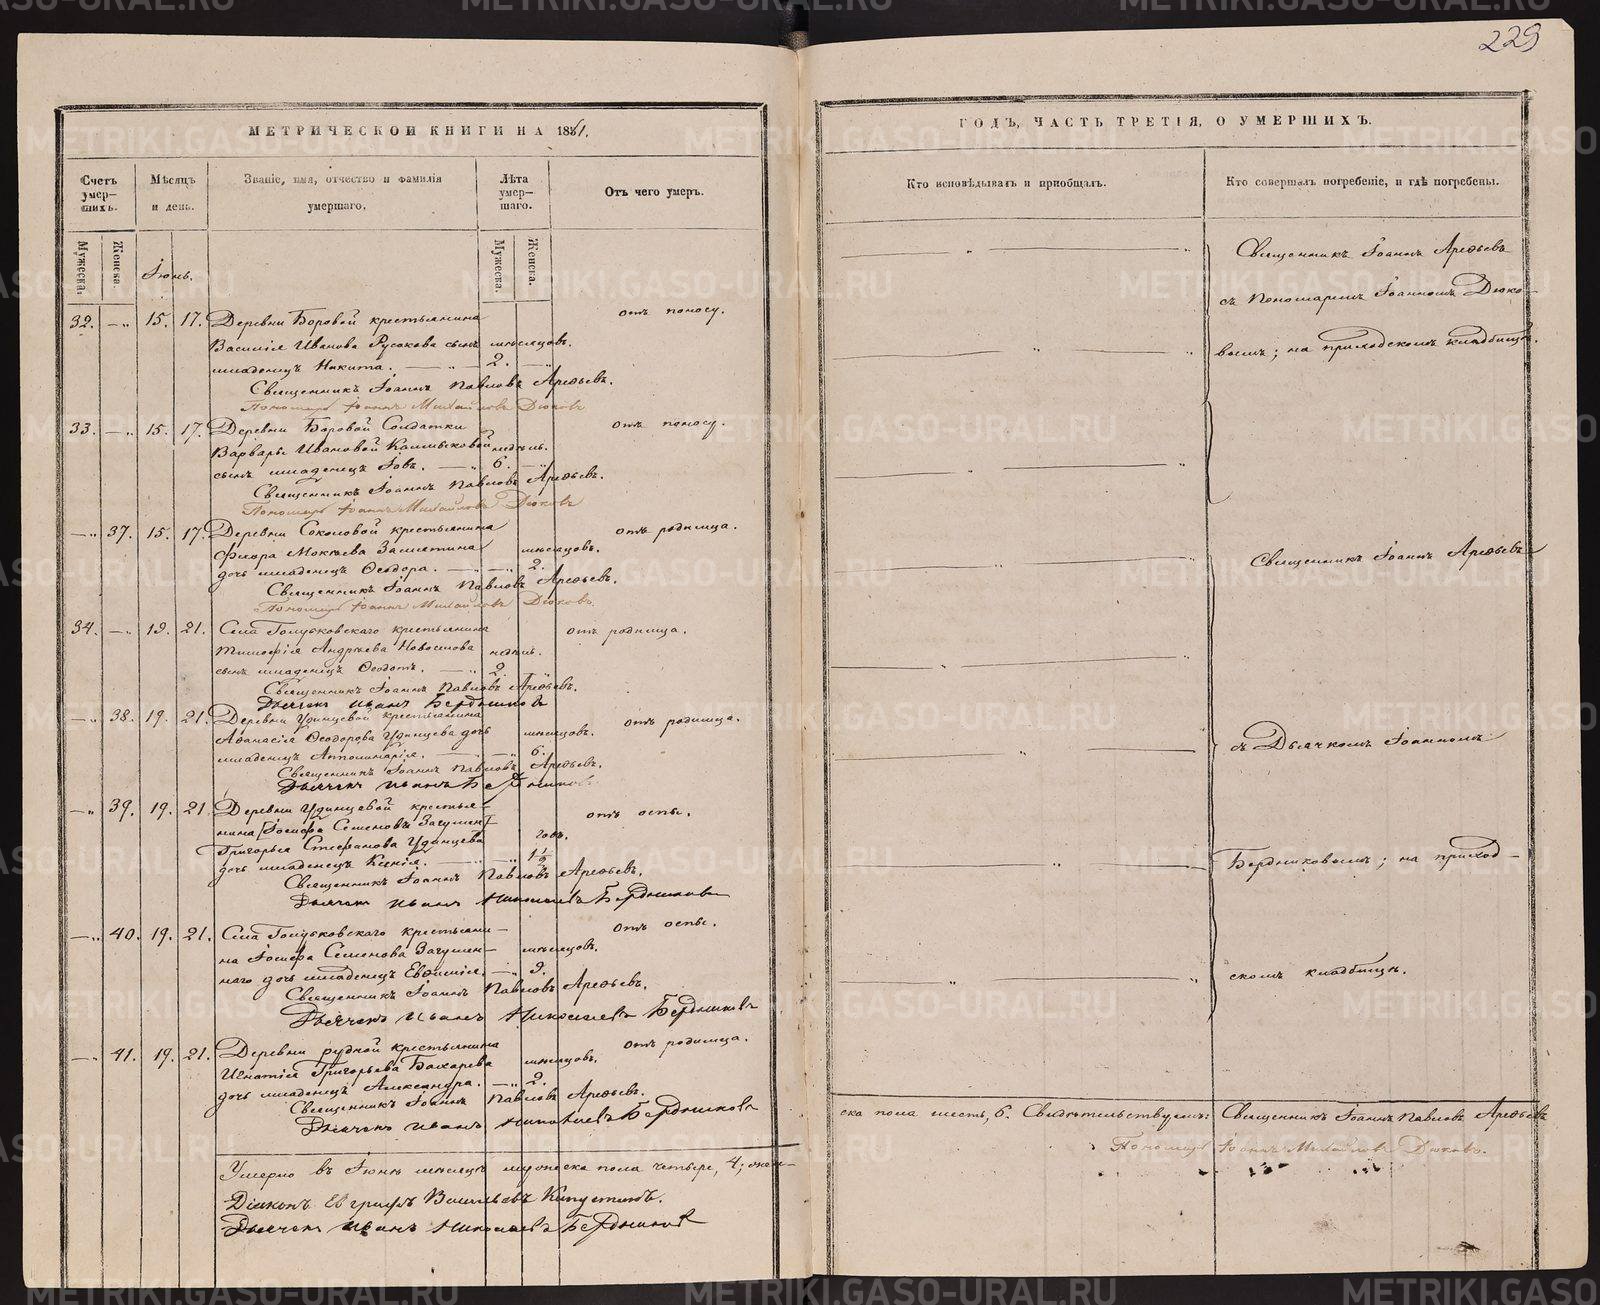 229
МЕТРИЧЕСКОЙ КНИГИ НА 1861.
ГОДЪ, ЧАСТЬ ТРЕТІЯ, О УМЕРШИХЪ.
Счетъ умер-шихъ.
Мѣсяцъ и день.
Званіе, имя, отчество и фамилія умершаго.
Лѣта умер-шаго.
Отъ чего умеръ.
Кто исповѣдывалъ и пріобщалъ.
Кто совершалъ погребеніе, и гдѣ погребены.
Мужеска.
Женска.
Іюнь.
Мужеска.
Женска.
32. 15. 17. Деревни Боровой крестьянина
отъ поносу.
Василія Иванова Русакова сынъ мѣсяцовъ.
младенецъ Никита. 2.
Священникъ Іоаннъ Павловъ Арефьевъ.
Пономарь Іоаннъ Михайловъ Дюковъ
33. 15. 17. Деревни Боровой Солдатки
отъ поносу.
Варвары Ивановой Калмыковой недѣль.
сынъ младенецъ Іовъ. 6.
Священникъ Іоаннъ Павловъ Арефьевъ.
Пономарь Іоаннъ Михайловъ Дюковъ
37. 15. 17. Деревни Соколовой крестьянина
отъ родимца.
Флора Мокіева Замятина мѣсяцовъ.
дочь младенецъ Ѳеодора. 2.
Священникъ Іоаннъ Павловъ Арефьевъ.
Пономарь Іоаннъ Михайловъ Дюковъ.
34. 19. 21. Села Голубковскаго крестьянина
отъ родимца.
Тимофія Андреева Новоселова недѣль.
сынъ младенецъ Ѳеодотъ. 2.
Священникъ Іоаннъ Павловъ Арефьевъ.
Дьячекъ Иванъ Бердниковъ
38. 19. 21. Деревни Удинцевой крестьянина
отъ родимца.
Аѳанасія Ѳеодорова Удинцева дочь мѣсяцовъ.
младенецъ Апполинарія. 6.
Священникъ Іоаннъ Павловъ Арефьевъ.
Дьячекъ Иванъ Бердниковъ
39. 19. 21. Деревни Удинцевой крестья-
отъ оспы.
нина [Іосифа Семеновъ Загумен]
Григорья Стефанова Удинцева годъ.
дочь младенецъ Ксенія. 1 1/2
Священникъ Іоаннъ Павловъ Арефьевъ.
Дьячекъ Иванъ Николаевъ Бердниковъ
40. 19. 21. Села Голубковскаго крестьяни-
отъ оспы.
на Іосифа Семенова Загумен- мѣсяцовъ.
наго дочь младенецъ Евфимія. 9.
Священникъ Іоаннъ Павловъ Арефьевъ.
Дьячекъ Иванъ Николаевъ Бердниковъ
41. 19. 21. Деревни рудной крестьянина
отъ родимца.
Игнатія Григорьева Бахарева мѣсяцовъ.
дочь младенецъ Александра. 2.
Священникъ Іоаннъ Павловъ Арефьевъ.
Дьячекъ Иванъ Николаевъ Бердниковъ
Умерло въ Іюнѣ мѣсяцѣ мужеска пола четыре, 4; жен-
Діаконъ Евграфъ Васильевъ Капустинъ.
Дьячекъ Иванъ Николаевъ Бердниковъ
Священникъ Іоаннъ Арефьевъ
съ Пономаремъ Іоанномъ Дюко-
вымъ; на приходскомъ кладбищѣ.
Священникъ Іоаннъ Арефьевъ
съ Дьячкомъ Іоанномъ
Бердниковымъ; на приход-
скомъ кладбищѣ.
ска пола шесть, 6. Свидѣтельствуемъ: Священникъ Іоаннъ Павловъ Арефьевъ
Пономарь Іоаннъ Михайловъ Дюковъ.
METRIKI.GASO-URAL.RU